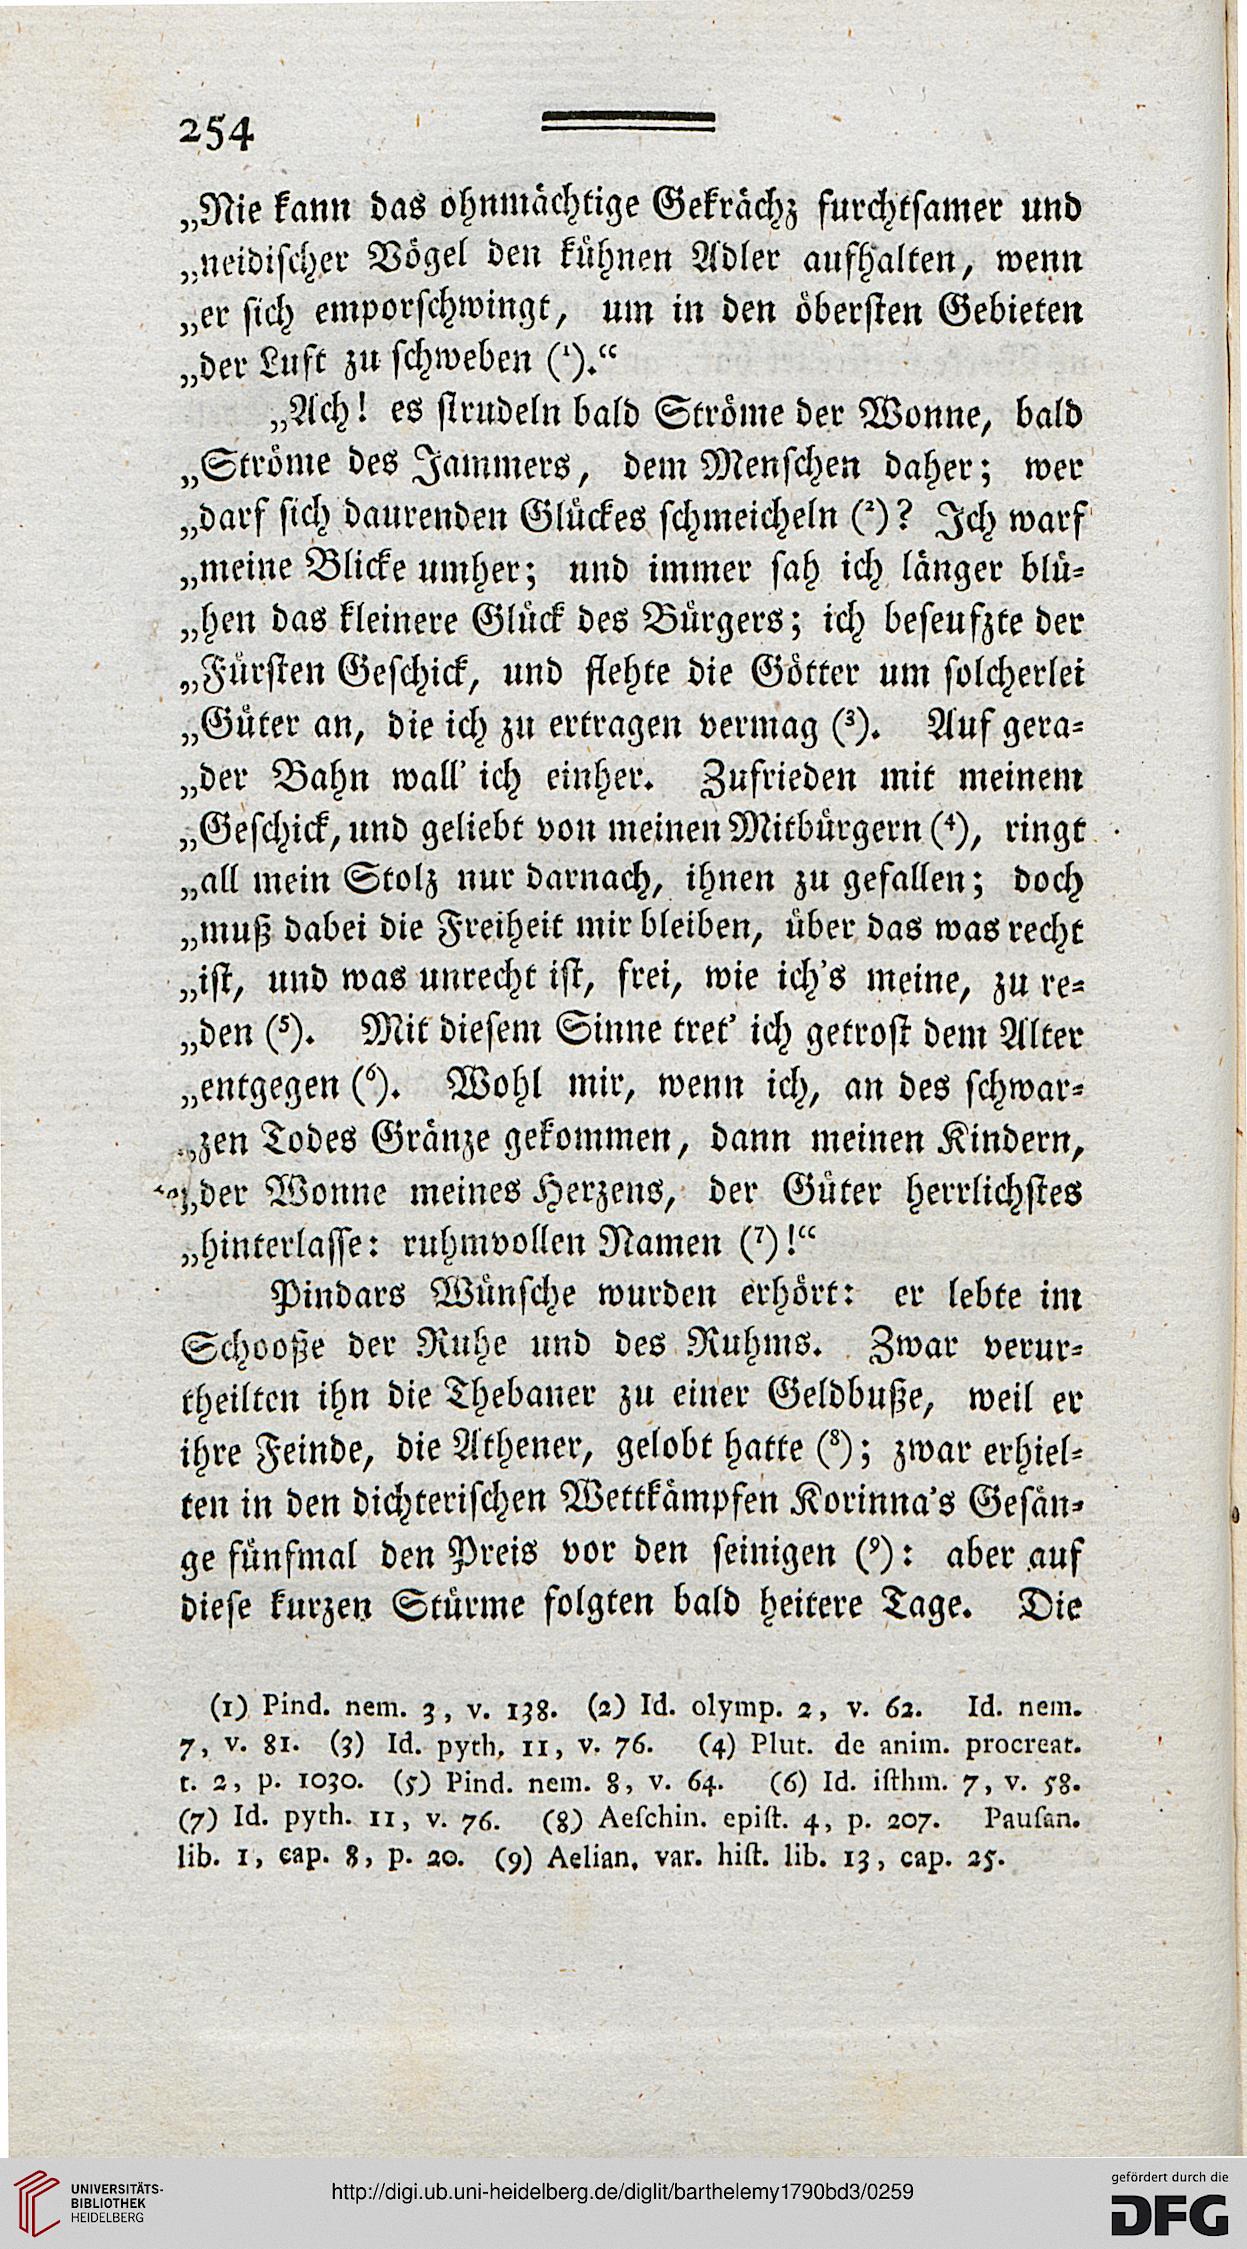 254
„Nie kann das ohnmächtige Gekrächz furchtsamer und
„neidischer Vögel den kühnen Adler aufhalten, wenn
„er sich emporschwingt, um in den öbersten Gebieten
„der Luft zu schweben (¹).“
„Ach! es strudeln bald Ströme der Wonne, bald
„Ströme des Jammers, dem Menschen daher; wer
„darf sich daurenden Glückes schmeicheln (²)? Ich warf
„meine Blicke umher; und immer sah ich länger blü-
„hen das kleinere Glück des Bürgers; ich beseufzte der
„Fürsten Geschick, und flehte die Götter um solcherlei
„Güter an, die ich zu ertragen vermag (³). Auf gera-
„der Bahn wall' ich einher. Zufrieden mit meinem
„Geschick, und geliebt von meinen Mitbürgern (⁴), ringt
„all mein Stolz nur darnach, ihnen zu gefallen; doch
„muß dabei die Freiheit mir bleiben, über das was recht
„ist, und was unrecht ist, frei, wie ich's meine, zu re-
„den (⁵). Mit diesem Sinne tret' ich getrost dem Alter
„entgegen (⁶). Wohl mir, wenn ich, an des schwar-
„zen Todes Gränze gekommen, dann meinen Kindern,
„der Wonne meines Herzens, der Güter herrlichstes
„hinterlasse: ruhmvollen Namen (⁷)!“
Pindars Wünsche wurden erhört: er lebte im
Schooße der Ruhe und des Ruhms. Zwar verur-
theilten ihn die Thebaner zu einer Geldbuße, weil er
ihre Feinde, die Athener, gelobt hatte (⁸); zwar erhiel-
ten in den dichterischen Wettkämpfen Korinna's Gesän-
ge fünfmal den Preis vor den seinigen (⁹): aber auf
diese kurzen Stürme folgten bald heitere Tage. Die
(1) Pind. nem. 3, v. 138. (2) Id. olymp. 2, v. 62. Id. nem.
7, v. 81. (3) Id. pyth. 11, v. 76. (4) Plut. de anim. procreat.
t. 2, p. 1030. (5) Pind. nem. 8, v. 64. (6) Id. isthm. 7, v. 58.
(7) Id. pyth. 11, v. 76. (8) Aeschin. epist. 4, p. 207. Pausan.
lib. 1, cap. 8, p. 20. (9) Aelian. var. hist. lib. 13, cap. 25.
UNIVERSITÄTS-
BIBLIOTHEK
HEIDELBERG
http://digi.ub.uni-heidelberg.de/diglit/barthelemy1790bd3/0259
gefördert durch die
DFG